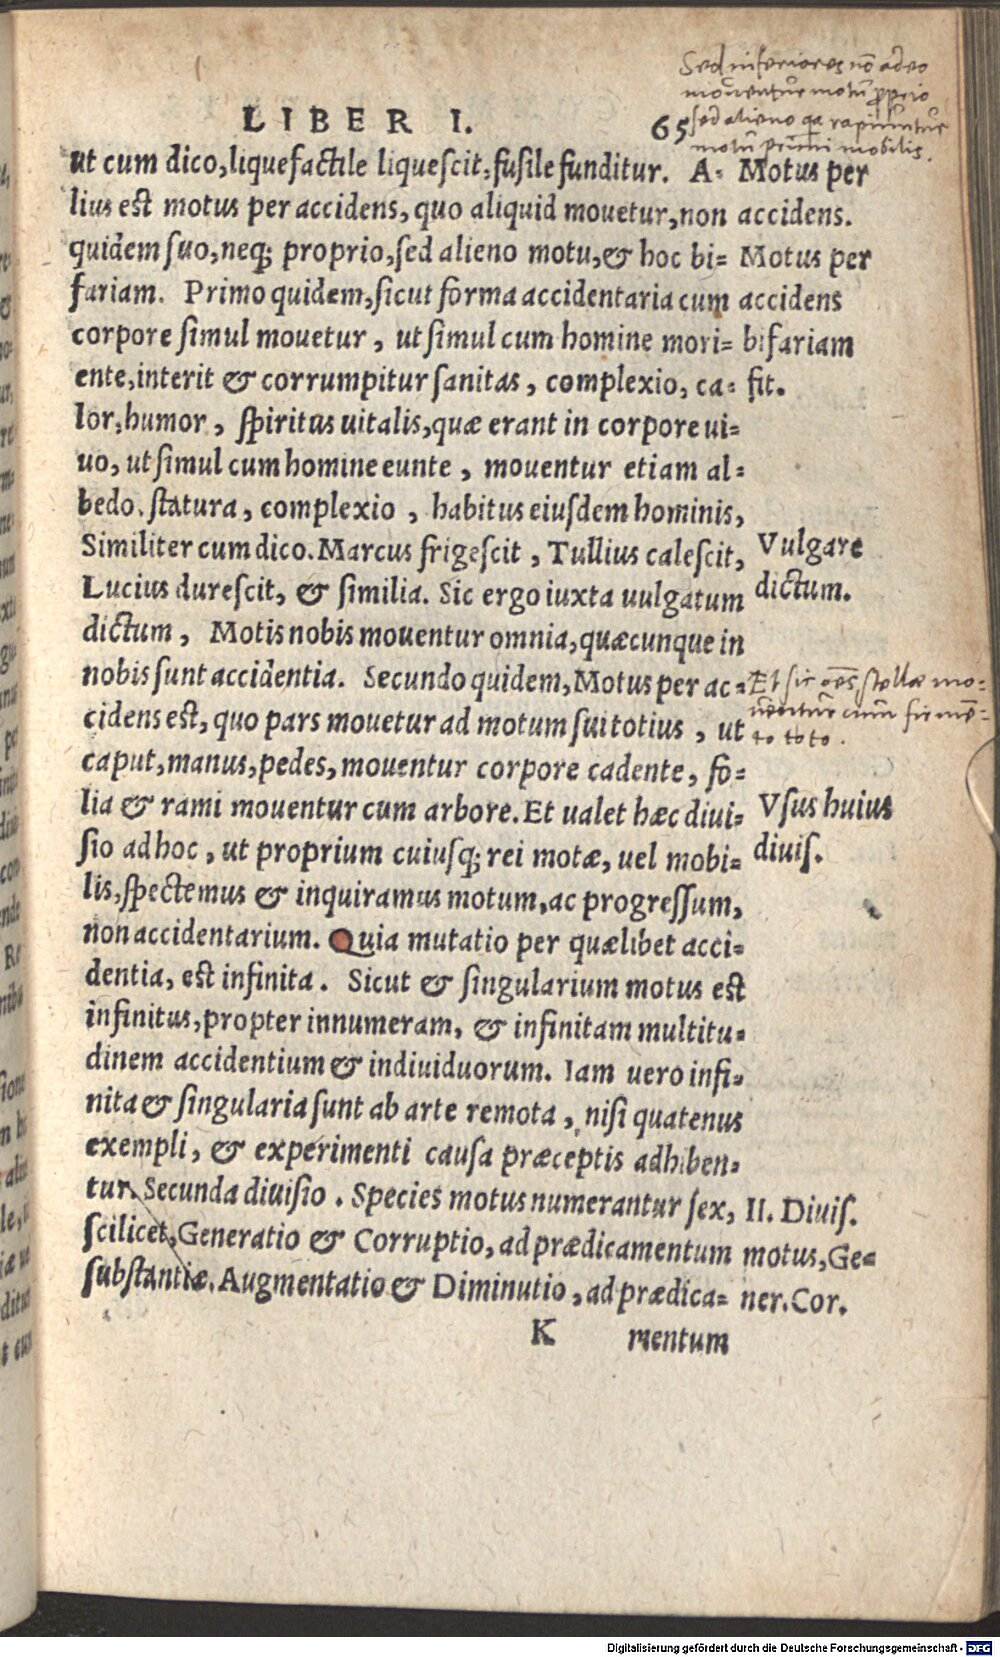 Sed inferiores nō adeo
mouentur motu proprio
sed alieno qa rapiuntur
motu primi mobilis.
LIBER I. 65
ut cum dico, liquefactile liquescit, fusile funditur. A-
lius est motus per accidens, quo aliquid mouetur, non
quidem suo, neq; proprio, sed alieno motu, & hoc bi-
fariam. Primo quidem, sicut forma accidentaria cum
corpore simul mouetur, ut simul cum homine mori-
ente, interit & corrumpitur sanitas, complexio, ca-
lor, humor, spiritus uitalis, quæ erant in corpore ui-
uo, ut simul cum homine eunte, mouentur etiam al-
bedo. statura, complexio, habitus eiusdem hominis,
Similiter cum dico. Marcus frigescit, Tullius calescit,
Lucius durescit, & similia. Sic ergo iuxta uulgatum
dictum, Motis nobis mouentur omnia, quæcunque in
nobis sunt accidentia. Secundo quidem, Motus per ac-
cidens est, quo pars mouetur ad motum sui totius, ut
caput, manus, pedes, mouentur corpore cadente, fo-
lia & rami mouentur cum arbore. Et ualet hæc diui-
sio ad hoc, ut proprium cuiusq; rei motæ, uel mobi-
lis, spectemus & inquiramus motum, ac progressum,
non accidentarium. Quia mutatio per quælibet acci-
dentia, est infinita. Sicut & singularium motus est
infinitus, propter innumeram, & infinitam multitu-
dinem accidentium & indiuiduorum. Iam uero infi-
nita & singularia sunt ab arte remota, nisi quatenus
exempli, & experimenti causa præceptis adhiben-
tur. Secunda diuisio. Species motus numerantur sex,
scilicet, Generatio & Corruptio, ad prædicamentum
substantiæ. Augmentatio & Diminutio, ad prædica-
K mentum
Motus per
accidens.
Motus per
accidens
bifariam
fit.
Vulgare
dictum.
Et sic oēs stellæ mo-
uentur cum firmē-
to toto.
Vsus huius
diuis.
II. Diuis.
motus, Ge-
ner. Cor.
Digitalisierung gefördert durch die Deutsche Forschungsgemeinschaft - DFG